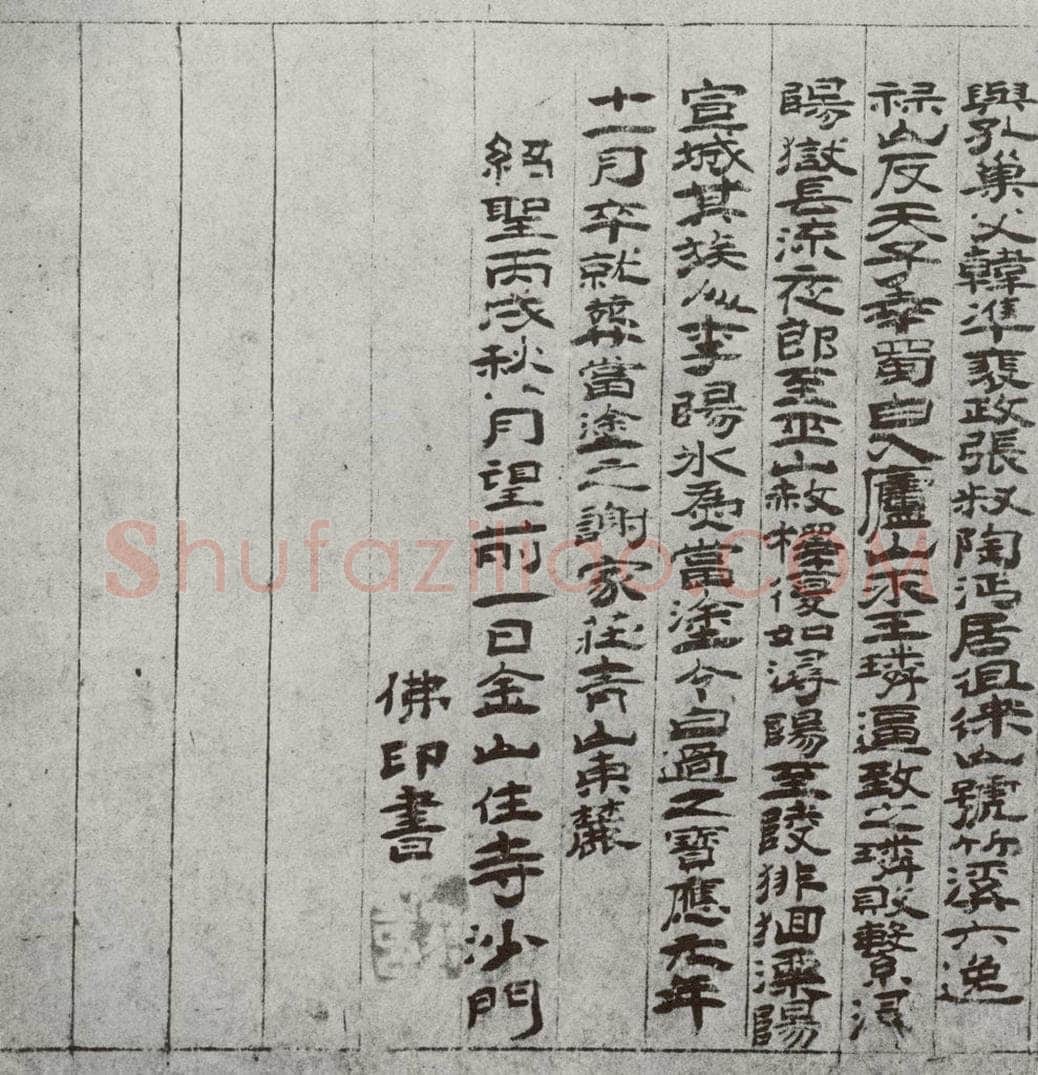 與孔巢父韓準裴政張叔陶沔居徂徠山號竹溪六逸
祿山反天子幸蜀白入廬山永王璘逼致之璘敗繫潯
陽獄長流夜郎至巫山赦釋復如潯陽至陵徘徊溧陽
宣城其族从李陽冰爲當塗令白過之寶應元年
十一月卒就葬當塗之謝家莊青山東麓
紹聖丙戌秋八月望前一日金山住寺沙門
佛印書
Shufaziliao.com